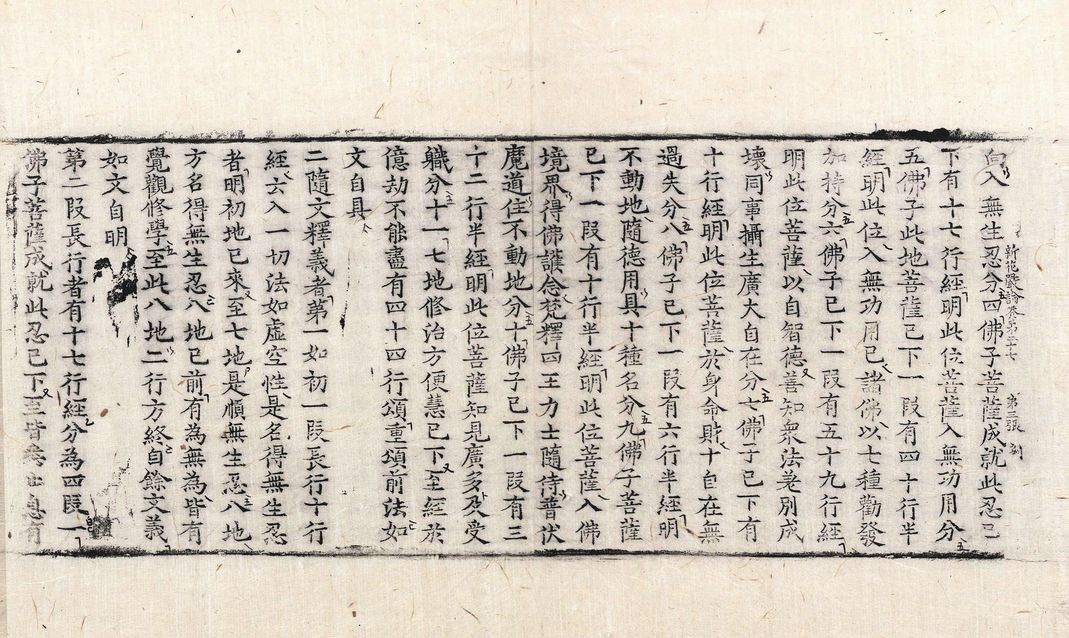 自入無生忍分四佛子菩薩成就此忍已
新花嚴論卷第二十七 第三張
下有十七行經明此位菩薩入無功用分
五佛子此地菩薩已下一段有四十行半
經明此位入無功用已諸佛以七種勸發
加持分六佛子已下一段有五十九行經
明此位菩薩以自智德善知衆法差別成
壞同事攝生廣大自在分七佛子已下有
十行經明此位菩薩於身命財十自在無
過失分八佛子已下一段有六行半經明
不動地隨德用具十種名分九佛子菩薩
已下一段有十行半經明此位菩薩入佛
境界得佛護念梵釋四王力士隨侍普伏
魔道住不動地分十佛子已下一段有三
十二行半經明此位菩薩知見廣多及受
職分十一七地修治方便慧已下至經於
億劫不能盡有四十四行頌重頌前法如
文自具
二隨文釋義者第一如初一段長行十行
經六入一切法如虛空性是名得無生忍
者明初地已來至七地是順無生忍八地
方名得無生忍八地已前有為無為皆有
覺觀修學至此八地二行方終自餘文義
如文自明
第二段長行者有十七行經分為四段一
佛子菩薩成就此忍已下至皆 息有